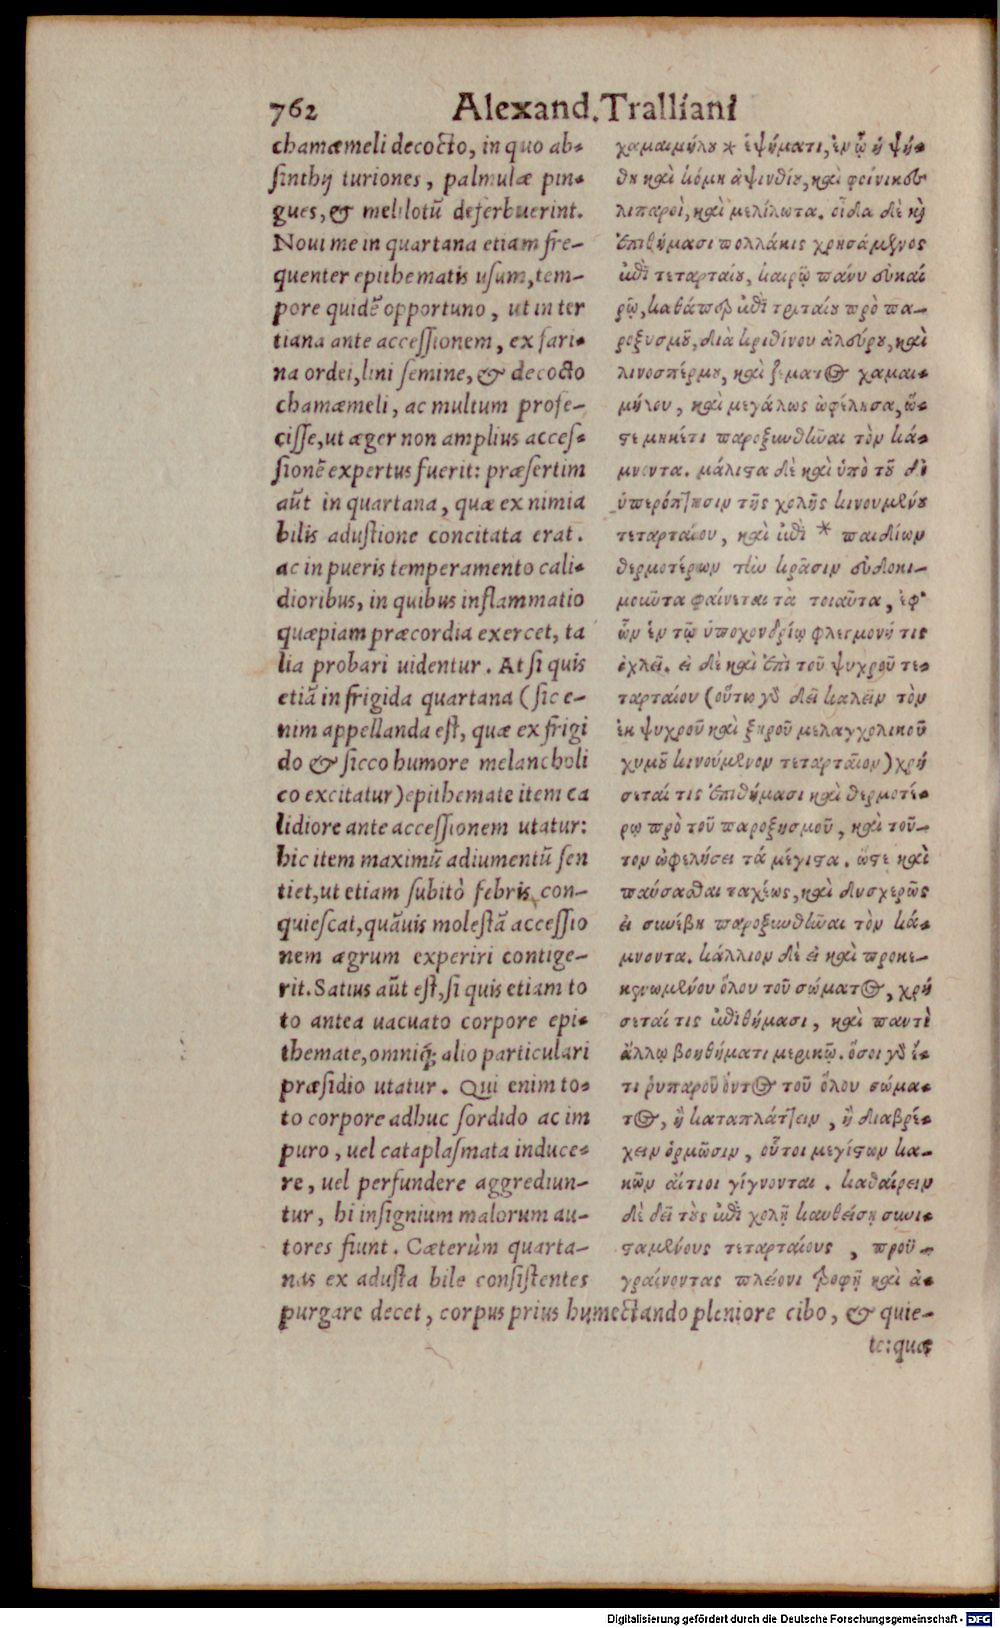 762 Alexand. Tralliani
chamæmeli decocto, in quo ab-
sinthij turiones, palmulæ pin-
gues, & melilotū deferbuerint.
Noui me in quartana etiam fre-
quenter epithematis usum, tem-
pore quidē opportuno, ut in ter
tiana ante accessionem, ex fari-
na ordei, lini semine, & decocto
chamæmeli, ac multum profe-
cisse, ut æger non amplius acces-
sionē expertus fuerit: præsertim
aūt in quartana, quæ ex nimia
bilis adustione concitata erat.
ac in pueris temperamento cali-
dioribus, in quibus inflammatio
quæpiam præcordia exercet, ta
lia probari uidentur. At si quis
etiā in frigida quartana (sic e-
nim appellanda est, quæ ex frigi
do & sicco humore melancholi
co excitatur) epithemate item ca
lidiore ante accessionem utatur:
hic item maximū adiumentū sen
tiet, ut etiam subitò febris con-
quiescat, quāuis molestā accessio
nem ægrum experiri contige-
rit. Satius aūt est, si quis etiam to
to antea uacuato corpore epi-
themate, omniq; alio particulari
præsidio utatur. Qui enim to-
to corpore adhuc sordido ac im
puro, uel cataplasmata induce-
re, uel perfundere aggrediun-
tur, hi insignium malorum au-
tores fiunt. Cæterùm quarta-
nas ex adusta bile consistentes
purgare decet, corpus prius humectando pleniore cibo, & quie-
te: quæ
χαμαιμήλου * ἑψήματι, ἐν ᾧ ἡψή-
θη καὶ κόμη ἀψινθίου, καὶ φοίνικες
λιπαροὶ, καὶ μελίλωτα. οἶδα δὲ καὶ
ἐπιθήμασι πολλάκις χρησάμενος
ἐπὶ τεταρταίου, καιρῷ πάνυ εὐκαί
ρῳ, καθάπερ ἐπὶ τριταίου πρὸ πα-
ροξυσμοῦ, διὰ κριθίνου ἀλεύρου, καὶ
λινοσπέρμου, καὶ ζέματος χαμαι-
μήλου, καὶ μεγάλως ὠφέλησα, ὥς-
τε μηκέτι παροξυνθῆναι τὸν κά-
μνοντα. μάλιστα δὲ καὶ ὑπὸ τοῦ δι
ὑπερόπτησιν τῆς χολῆς κινουμένου
τεταρταίου, καὶ ἐπὶ * παιδίων
θερμοτέρων τὴν κρᾶσιν εὐδοκι-
μοῦντα φαίνεται τὰ τοιαῦτα, ἐφ'
ὧν ἐν τῷ ὑποχονδρίῳ φλεγμονή τις
ὀχλεῖ. εἰ δὲ καὶ ἐπὶ τοῦ ψυχροῦ τε-
ταρταίου (οὕτω γὰρ δεῖ καλεῖν τὸν
ἐκ ψυχροῦ καὶ ξηροῦ μελαγχολικοῦ
χυμοῦ κινούμενον τεταρταῖον) χρή
σεταί τις ἐπιθήμασι καὶ θερμοτέ-
ρῳ πρὸ τοῦ παροξησμοῦ, καὶ τοῦ-
τον ὠφελήσει τὰ μέγιστα. ὥστε καὶ
παύσασθαι ταχέως, καὶ δυσχερῶς
εἰ συνέβη παροξυνθῆναι τὸν κά-
μνοντα. κάλλιον δὲ εἰ καὶ προκε-
κενωμένου ὅλου τοῦ σώματος, χρή
σεταί τις ἐπιθήμασι, καὶ παντὶ
ἄλλῳ βοηθήματι μερικῷ. ὅσοι γὰρ ἔ-
τι ῥυπαροῦ ὄντος τοῦ ὅλου σώμα-
τος, ἢ καταπλάττειν, ἢ διαβρέ-
χειν ὁρμῶσιν, οὗτοι μεγίστων κα-
κῶν αἴτιοι γίγνονται. καθαίρειν
δὲ δεῖ τοὺς ἐπὶ χολῇ καυθείσῃ συνι-
σταμένους τεταρταίους, προϋ-
γραίνοντας πλείονι τροφῇ καὶ ἀ-
Digitalisierung gefördert durch die Deutsche Forschungsgemeinschaft - DFG